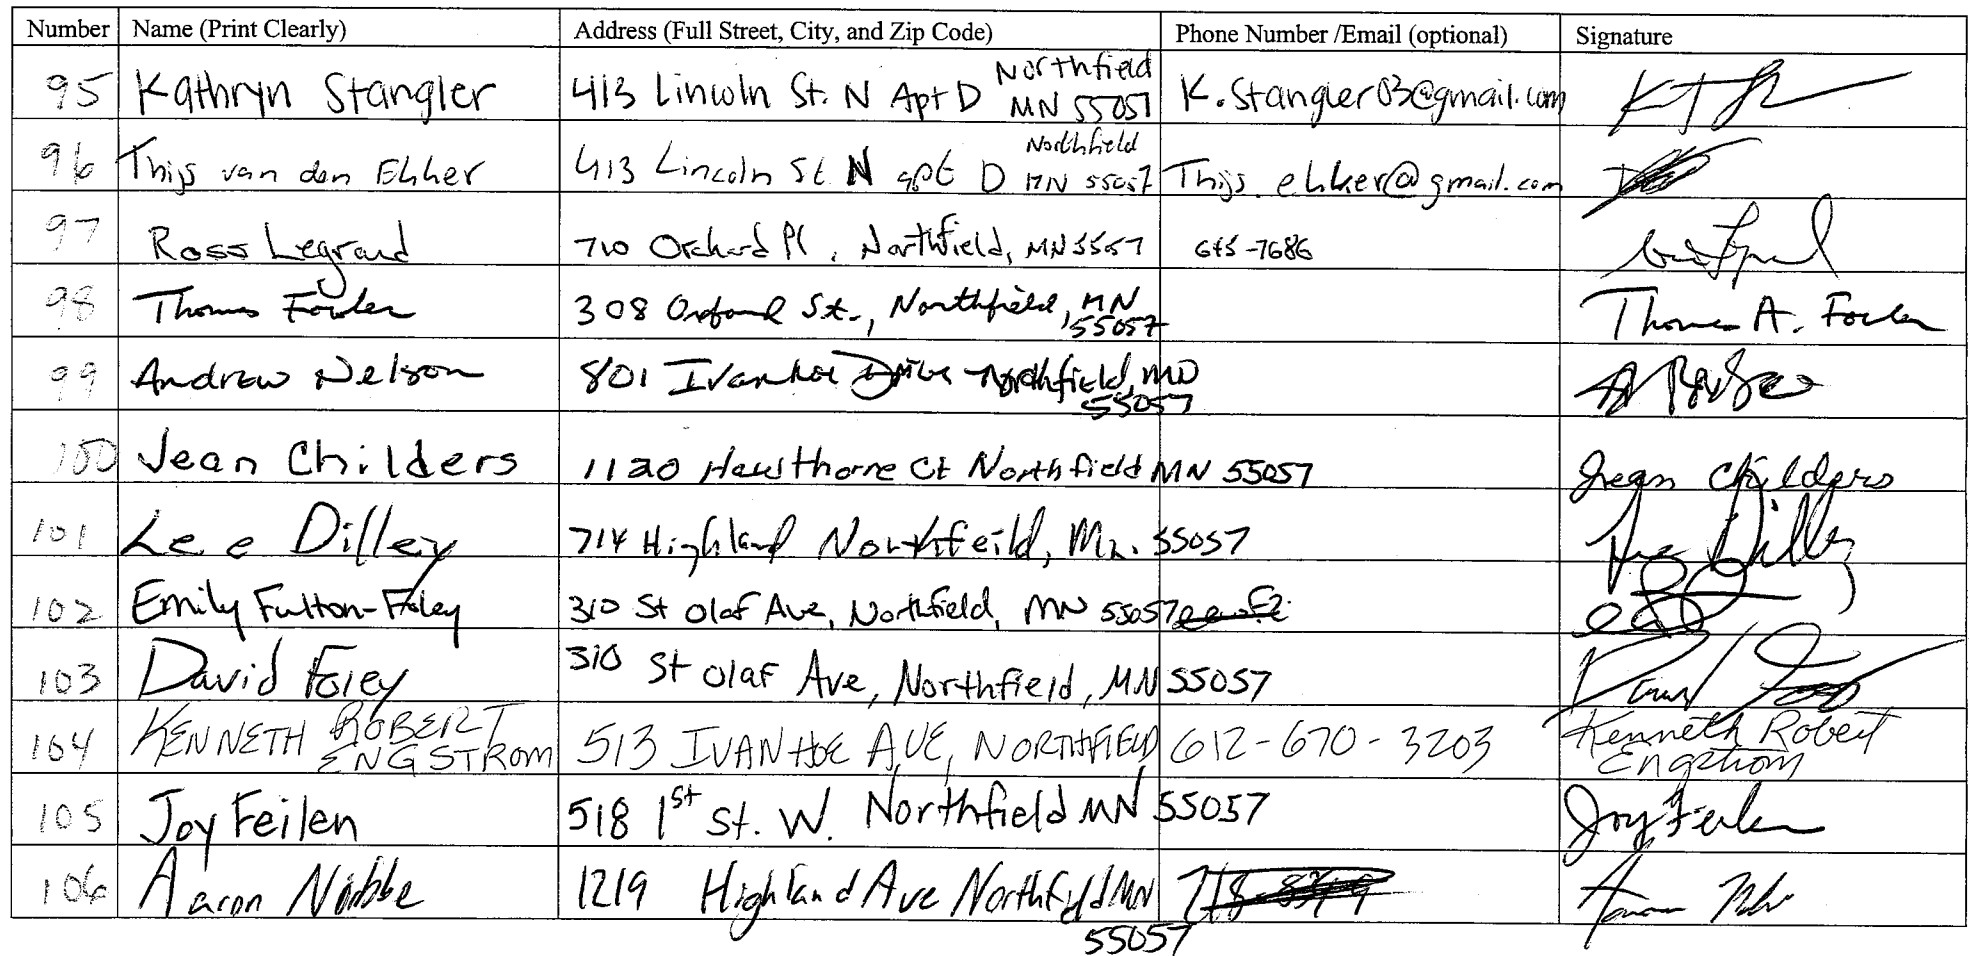 Number Name (Print Clearly) Address (Full Street, City, and Zip Code) Phone Number /Email (optional) Signature
95 Kathryn Stangler 413 Lincoln St. N Apt D Northfield MN 55057 K.Stangler03@gmail.com
96 Thijs van den Ekker 413 Lincoln St N apt D Northfield MN 55057 Thijs.ekker@gmail.com
97 Ross Legrand 710 Orchard Pl, Northfield, MN 55057 645-7686
98 Thomas Fowler 308 Orchard St., Northfield, MN 55057 Thomas A. Fowler
99 Andrew Nelson 801 Ivanhoe Drive Northfield, MN 55057
100 Jean Childers 1120 Hawthorne Ct Northfield MN 55057 Jean Childers
101 Lee Dilley 714 Highland Northfeild, Mn. 55057 Lee Dilley
102 Emily Fulton-Foley 310 St Olaf Ave, Northfield, MN 55057
103 David Foley 310 St Olaf Ave, Northfield, MN 55057
104 KENNETH ROBERT ENGSTROM 513 IVANHOE AVE, NORTHFIELD 612-670-3203 Kenneth Robert Engstrom
105 Joy Feilen 518 1st St. W. Northfield MN 55057 Joy Feilen
106 Aaron Nibbe 1219 Highland Ave Northfield MN 55057